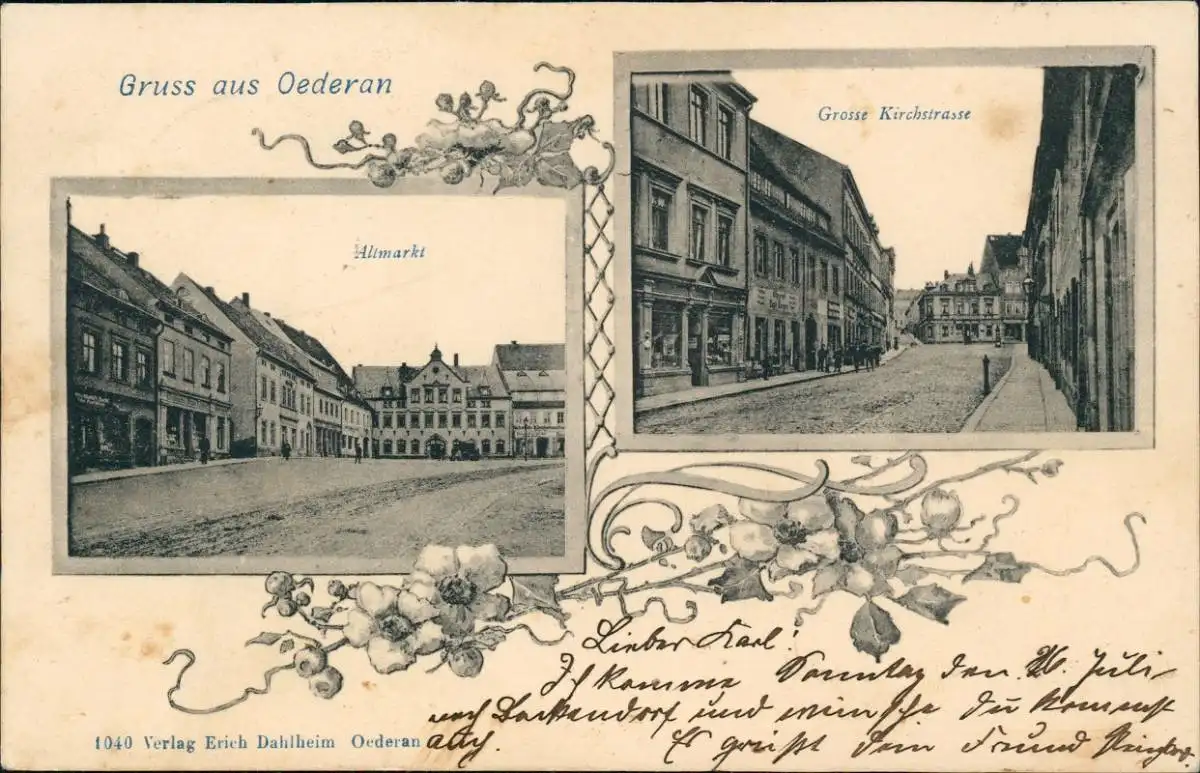 Gruss aus Oederan
Grosse Kirchstrasse
Altmarkt
Lieber Karl!
Ich komme Sonntag den 26. Juli
nach Dackendorf und wünsche du kommst
auch. Es grüßt dein Freund
1040 Verlag Erich Dahlheim Oederan